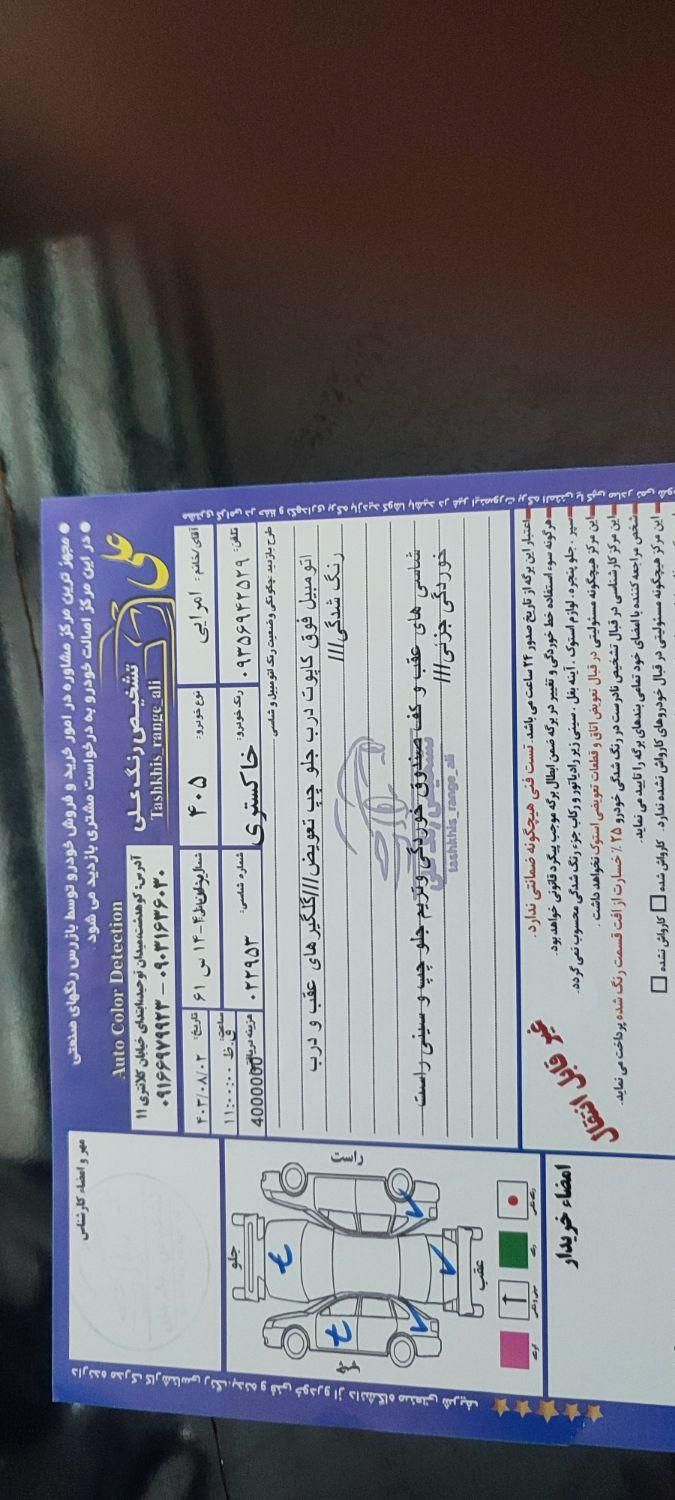 ● مجهز ترین مرکز مشاوره در امور خرید و فروش خودرو توسط بازرس رنگهای صنعتی
● در این مرکز اصالت خودرو به درخواست مشتری بازدید می شود
Auto Color Detection
تشخیص رنگ علی
علی
Tashkhis_range_ali
آدرس: کوهدشت،میدان توحید،ابتدای خیابان کلانتری ۱۱
۰۹۱۶۶۹۷۹۹۲۳ - ۰۹۰۳۱۶۳۶۰۳۰
آقای/خانم: امرایی
نوع خودرو: ۴۰۵
۱۴-۴ س ۶۱
تاریخ: ۴۰۳/۰۸/۰۲
تلفن: ۰۹۳۵۶۹۴۲۵۲۹
رنگ خودرو: خاکستری
شماره شاسی: ۰۲۲۹۵۳
ساعت: ۱۱:۰۰:۰۰ ق.ظ
هزینه 4000000
طرح بازدید :چگونگی وضعیت رنگ اتومبیل و شاسی
اتومبیل فوق کاپوت درب جلو چپ تعویض///گلگیر های عقب و درب
رنگ شدگی///
شاسی های عقب و کف صندوق خوردگی وتریم جلو چپ و سینی راست
خوردگی جزئی///
tashkhis_range_ali
اعتبار این برگه از تاریخ صدور ۲۴ ساعت می باشد. تست فنی هیچگونه ضمانتی ندارد.
هرگونه سوء استفاده خط خوردگی و تغییر در برگه ضمن ابطال برگه موجب پیگرد قانونی خواهد بود.
سپر، جلو پنجره، لوازم استوک، آینه بغل، سینی زیر رادیاتور و رکاب جزء رنگ شدگی محسوب نمی گردد.
این مرکز هیچگونه مسئولیتی در قبال تعویض اتاق و قطعات تعویضی استوک نخواهد داشت.
این مرکز کارشناسی در قبال تشخیص نادرست در رنگ شدگی خودرو ۲۵٪ خسارت از افت قسمت رنگ شده پرداخت می نماید.
شخص مراجعه کننده با امضای خود تمامی بندهای برگه را تایید می نماید.
این مرکز هیچگونه مسئولیتی در قبال خودروهای کارواش نشده ندارد. کارواش شده □ کارواش نشده □
غیر قابل انتقال
مهر و امضاء کارشناس
راست
جلو
عقب
چپ
ت
ت
امضاء خریدار